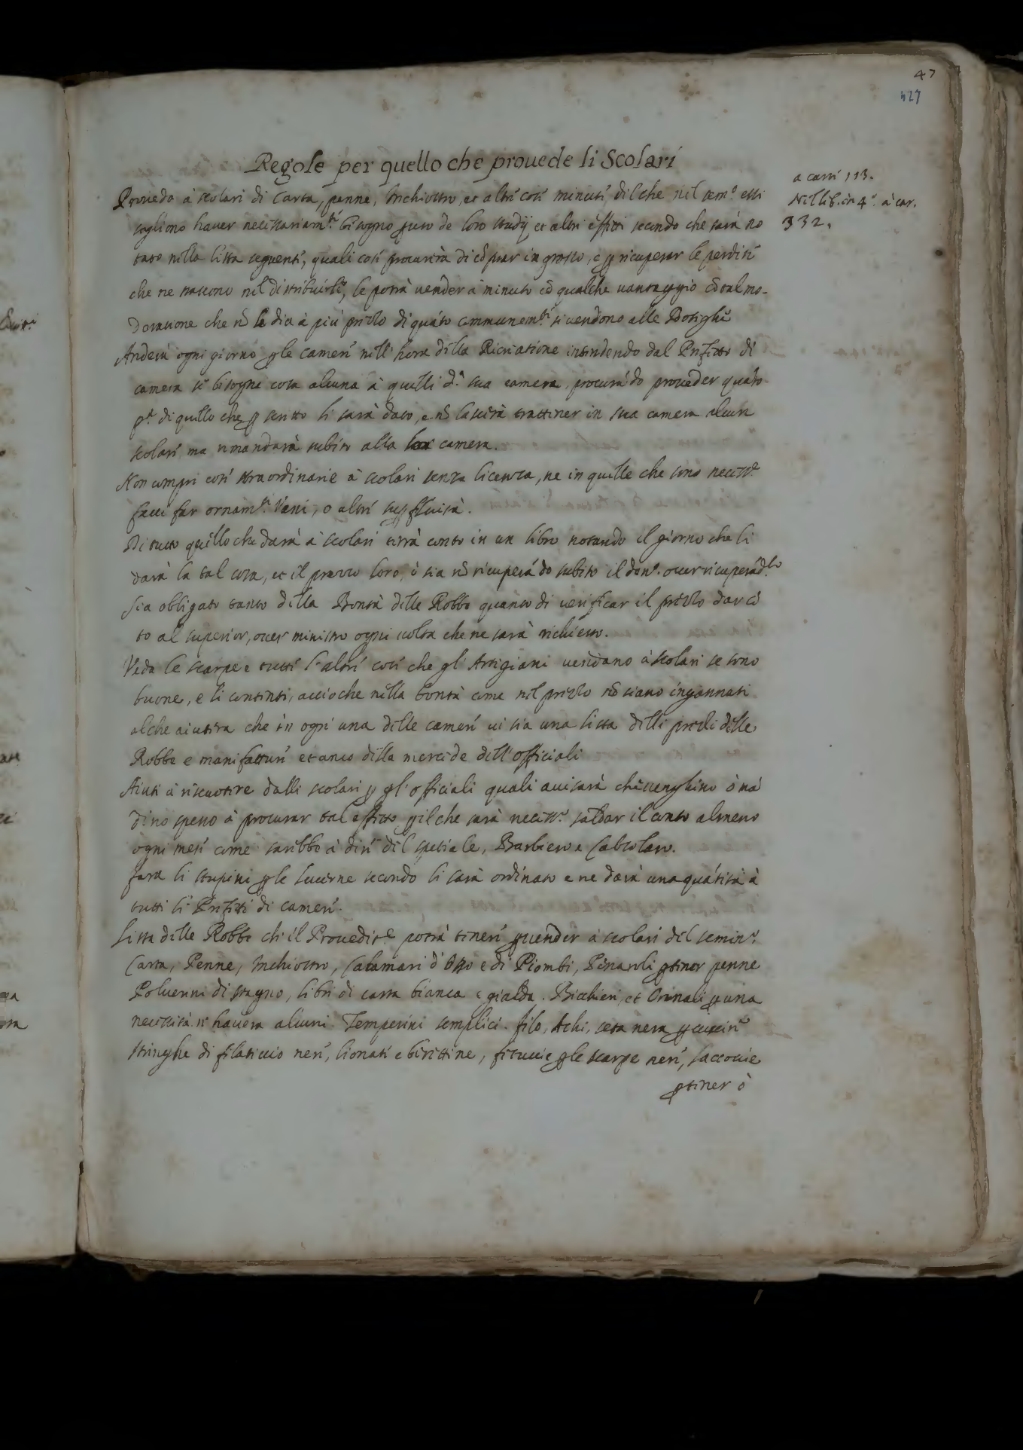 47
427
Regole per quello che prouede li Scolari
a carti 113.
Nel lib. in 4°. a car.
332.
Prouedo à scolari di Carta, penne, Inchiostro et altri cosi minuti dilche nel sem.° essi
sogliono hauer necessariam.te bisogno p uso de loro studij et altri effetti secondo che sarà no
tato nella lista seguenti, quali cosi procurerà di cõprar in grosso, e p ricuperar le perditi
che ne nascono nel distribuirli, le potrà vender à minuto cõ qualche vantaggio cõ tal mo-
deratione che nõ le dia à più prezzo di quãto communem.te si vendono alle Botighi
Anderà ogni giorno p le cameri nell'hora della Ricreatione intendendo dal Prefetto di
camera se bisogna cosa alcuna à quelli d.a sua camera, procurãdo proueder quãto
p.a di quello che p scritto li sarà dato, e nõ lascierà trattiner in sua camera alcun
scolari ma rimandarà subito alla camera.
Non compri cosi straordinarie à scolari senza licenza, ne in quelle che sono necess.e
facci far ornam.ti vani, o altri supfluità.
Di tutto quello che darà à scolari tirrà conto in un libro notando il giorno che li
darà la tal cosa, et il prezzo loro, ò sia nõ ricuperãdo subito il den.° ouer ricuperãd.lo
Sia obligato tanto della Bontà delle Robbe quanto di verificar il prezzo dar cõ
to al superior, ouer ministro ogni volta che ne sarà richiesto.
Veda le scarpe e tutti l'altri cosi che gl'Artigiani vendano à scolari se sono
buone, e li contenti, accioche nella bontà come nel prezzo nõ siano ingannati
alche aiutera che in ogni una delle cameri ui sia una lista delli prezzi delle
Robbe e manifatturi et anco della mercede dell'officiali
Aiuti à riscuotire dalli scolari p gl'officiali quali auisarà che venghino ò mã
dino spesso à procurar tal effetto p ilche sarà necess.° saldar il conto almeno
ogni mesi come saribbe à diri del spetiale, Barbiero e Calzolaro.
Farà li stupini p le lucerne secondo li sarà ordinato e ne darà una quãtità à
tutti li Prefetti di cameri.
Lista delle Robbe chi il Proueditre potrà teneri p vender à scolari del semin.°
Carta, Penne, Inchiostro, Calamari d'Osso e di Piombi, Pënaroli p tiner penne
Poluerini di stagno, libri di carta bianca e gialda. Bicchieri et Orinali p una
necessità s'hauera alcuni. Temperini semplici. filo, Achi, seta nera p cuciri
Stringhe di filaticcio neri, lionati e birittine, fitucci p le scarpe neri, saccocie
p tiner ò